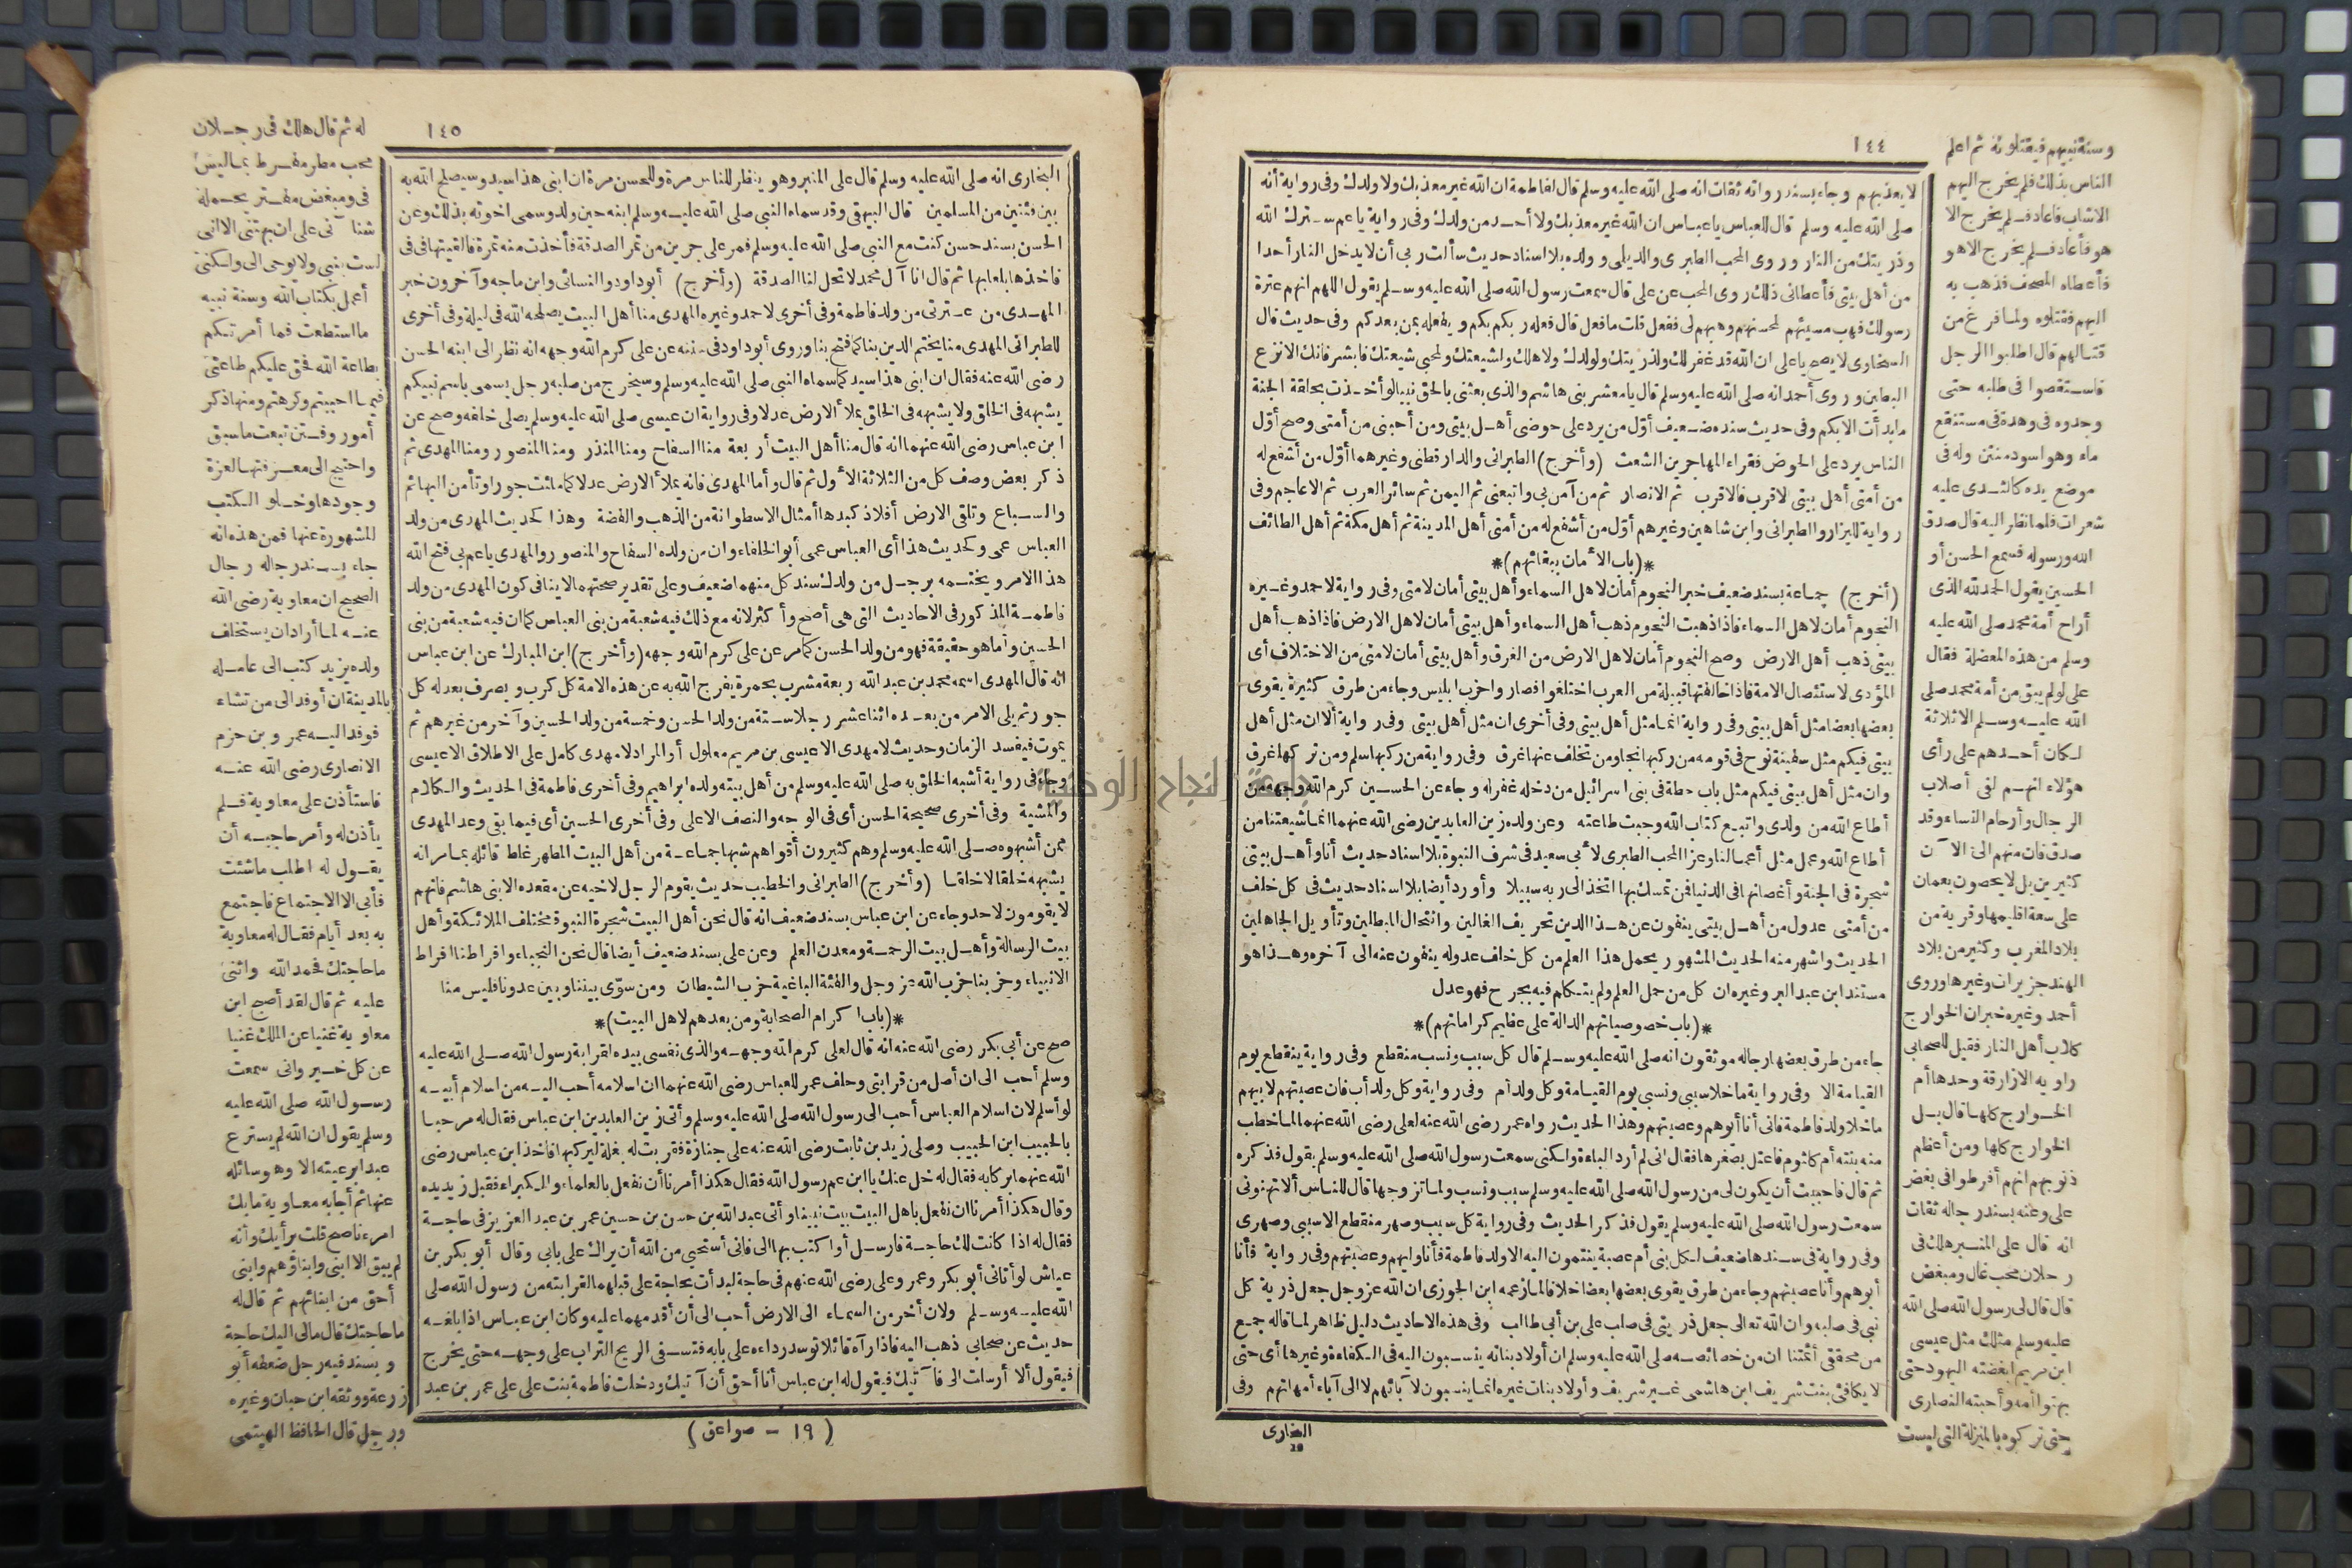 ١٤٤
لا يعذبهم وجاء بسند رواته ثقات انه صلى الله عليه وسلم قال لفاطمة ان الله غير معذبك ولا ولدك وفى رواية أنه
صلى الله عليه وسلم قال للعباس يا عباس ان الله غير معذبك ولا أحد من ولدك وفى رواية يا عم سترك الله
وذريتك من النار وروى المحب الطبرى والديلى وولده بلا اسناد حديث سألت ربى أن لا يدخل النار أحدا
من أهل بيتى فأعطانى ذلك روى المحب عن على قال سمعت رسول الله صلى الله عليه وسلم يقول اللهم انهم عترة
رسولك فهب مسيئهم لمحسنهم وهبهم لى ففعل قلت ما فعل قال فعله ربكم بكم ويفعله بمن بعدكم وفى حديث قال
السخاوى لا يصح يا على ان الله قد غفر لك ولذريتك ولولدك ولاهلك ولشيعتك ولمحبى شيعتك فابشر فانك الانزع
البطين وروى أحمد انه صلى الله عليه وسلم قال يا معشر بنى هاشم والذى بعثنى بالحق نبيا لو أخذت بحلقة الجنة
ما بدأت الا بكم وفى حديث سنده ضعيف أول من يرد على حوضى أهل بيتى ومن أحبنى من أمتى وصح أول
الناس يرد على الحوض فقراء المهاجرين الشعث (وأخرج) الطبرانى والدارقطنى وغيرهما أول من أشفع له
من أمتى أهل بيتى الاقرب فالاقرب ثم الانصار ثم من آمن بى واتبعنى ثم اليمن ثم سائر العرب ثم الاعاجم وفى
رواية للبزار والطبرانى وابن شاهين وغيرهم أول من أشفع له من أمتى أهل المدينة ثم أهل مكة ثم أهل الطائف
*(باب الأمان ببقائهم)*
(أخرج) جماعة بسند ضعيف خبر النجوم أمان لاهل السماء وأهل بيتى أمان لامتى وفى رواية لاحمد وغيره
النجوم أمان لاهل السماء فاذا ذهبت النجوم ذهب أهل السماء وأهل بيتى أمان لاهل الارض فاذا ذهب أهل
بيتى ذهب أهل الارض وصح النجوم أمان لاهل الارض من الغرق وأهل بيتى أمان لامتى من الاختلاف أى
المؤدى لاستئصال الامة فاذا خالفتها قبيلة من العرب اختلفوا فصاروا حزب ابليس وجاء من طرق كثيرة يقوى
بعضها بعضا مثل أهل بيتى وفى رواية انما مثل أهل بيتى وفى أخرى ان مثل أهل بيتى وفى رواية ألا ان مثل أهل
بيتى فيكم مثل سفينة نوح فى قومه من ركبها نجا ومن تخلف عنها غرق وفى رواية من ركبها سلم ومن تركها غرق
وان مثل أهل بيتى فيكم مثل باب حطة فى بنى اسرائيل من دخله غفر له وجاء عن الحسين كرم الله وجهه من
أطاع الله من ولدى واتبع كتاب الله وجبت طاعته وعن ولده زين العابدين رضى الله عنهما انما شيعتنا من
أطاع الله وعمل مثل أعمالنا وعزا المحب الطبرى لأبى سعيد فى شرف النبوة بلا اسناد حديث أنا وأهل بيتى
شجرة فى الجنة وأغصانها فى الدنيا فمن تمسك بها اتخذ الى ربه سبيلا وأورد أيضا بلا اسناد حديث فى كل خلف
من أمتى عدول من أهل بيتى ينفون عن هذا الدين تحريف الغالين وانتحال المبطلين وتأويل الجاهلين
الحديث واشهر منه الحديث المشهور يحمل هذا العلم من كل خلف عدوله ينفون عنه الى آخره وهذا هو
مستند ابن عبد البر وغيره ان كل من حمل العلم ولم يتكلم فيه بجرح فهو عدل
*(باب خصوصياتهم الدالة على عظيم كراماتهم)*
جاء من طرق بعضها رجاله موثقون انه صلى الله عليه وسلم قال كل سبب ونسب منقطع وفى رواية ينقطع يوم
القيامة الا وفى رواية ما خلا سببى ونسبى يوم القيامة وكل ولد أم وفى رواية وكل ولد أب فان عصبتهم لابيهم
ما خلا ولد فاطمة فانى أنا أبوهم وعصبتهم وهذا الحديث رواه عمر رضى الله عنه لعلى رضى الله عنهما لما خطب
منه بنته أم كلثوم فاعتل بصغرها فقال انى لم أرد الباءة ولكنى سمعت رسول الله صلى الله عليه وسلم يقول فذكره
ثم قال فاحببت أن يكون لى من رسول الله صلى الله عليه وسلم سبب ونسب ولما تزوجها قال للناس ألا تهنونى
سمعت رسول الله صلى الله عليه وسلم يقول فذكر الحديث وفى رواية كل سبب وصهر منقطع الا سببى وصهرى
وفى رواية فى سندها ضعيف لكل بنى أم عصبة ينتمون اليه الا ولد فاطمة فأنا وليهم وعصبتهم وفى رواية فأنا
أبوهم وأنا عصبتهم وجاء من طرق يقوى بعضها بعضا خلافا لما زعمه ابن الجوزى ان الله عز وجل جعل ذرية كل
نبى فى صلبه وان الله تعالى جعل ذريتى فى صلب على بن أبى طالب وفى هذه الاحاديث دليل ظاهر لما قاله جمع
من محققى أئمتنا ان من خصائصه صلى الله عليه وسلم ان أولاد بناته ينسبون اليه فى الكفاءة وغيرها أى حتى
لا يكافئ بنت شريف ابن هاشمى غير شريف وأولاد بنات غيره انما ينسبون لآبائهم لا الى آباء أمهاتهم وفى
البخارى
وسنة نبيهم فيقتلونه ثم اعلم
الناس بذلك فلم يخرج اليهم
الا شاب فاعاد فلم يخرج الا
هو فأعاد فلم يخرج الا هو
فأعطاه المصحف فذهب به
اليهم فقتلوه ولما فرغ من
قتالهم قال اطلبوا الرجل
فاستقصوا فى طلبه حتى
وجدوه فى وهدة فى مستنقع
ماء وهو اسود منتن وله فى
موضع يده كالثدى عليه
شعرات فلما نظر اليه قال صدق
الله ورسوله فسمع الحسن أو
الحسين يقول الحمد لله الذى
أراح أمة محمد صلى الله عليه
وسلم من هذه المعضلة فقال
على لو لم يبق من أمة محمد صلى
الله عليه وسلم الا ثلاثة
لكان أحدهم على رأى
هؤلاء انهم لفى أصلاب
الرجال وأرحام النساء وقد
صدق فان منهم الى الآن
كثيرين بل لا يحصون بعمان
على سعة اقليمها وقرية من
بلاد المغرب وكثير من بلاد
الهند جزيران وغيرها وروى
أحمد وغيره خبر ان الخوارج
كلاب أهل النار فقيل للصحابى
راويه الازارقة وحدها أم
الخوارج كلها قال بل
الخوارج كلها ومن أعظم
ذنوبهم انهم أفرطوا فى بغض
على وعنه بسند رجاله ثقات
انه قال على المنبر هلك فى
رجلان محب غال ومبغض
قال قال لى رسول الله صلى الله
عليه وسلم مثلك مثل عيسى
ابن مريم ابغضته اليهود حتى
بهتوا أمه وأحبته النصارى
حتى تركوه بالمنزلة التى ليست
١٤٥
البخارى انه صلى الله عليه وسلم قال على المنبر وهو ينظر للناس مرة وللحسن مرة ان ابنى هذا سيد وسيصلح الله به
بين فئتين من المسلمين قال البيهقى وقد سماه النبى صلى الله عليه وسلم ابنه حين ولد وسمى اخوته بذلك وعن
الحسن بسند حسن كنت مع النبى صلى الله عليه وسلم فمر على جرين من تمر الصدقة فأخذت منه تمرة فالقيتها فى فى
فاخذها بلعابها ثم قال انا آل محمد لا تحل لنا الصدقة (وأخرج) أبو داود والنسائى وابن ماجه وآخرون خبر
المهدى من عترتى من ولد فاطمة وفى أخرى لاحمد وغيره المهدى منا أهل البيت يصلحه الله فى ليلة وفى أخرى
للطبرانى المهدى منا يختم الدين بنا كما فتح بنا وروى أبو داود فى سننه عن على كرم الله وجهه انه نظر الى ابنه الحسن
رضى الله عنه فقال ان ابنى هذا سيد كما سماه النبى صلى الله عليه وسلم وسيخرج من صلبه رجل يسمى باسم نبيكم
يشبهه فى الخلق ولا يشبهه فى الخلق يملأ الارض عدلا وفى رواية ان عيسى صلى الله عليه وسلم يصلى خلفه وصح عن
ابن عباس رضى الله عنهما انه قال منا أهل البيت أربعة منا السفاح ومنا المنذر ومنا المنصور ومنا المهدى ثم
ذكر بعض وصف كل من الثلاثة الأول ثم قال وأما المهدى فانه يملأ الارض عدلا كما ملئت جورا وتأمن البهائم
والسباع وتلقى الارض أفلاذ كبدها أمثال الاسطوانة من الذهب والفضة وهذا كحديث المهدى من ولد
العباس عمى وكحديث هذا أى العباس عمى أبو الخلفاء وان من ولده السفاح والمنصور والمهدى يا عم بى فتح الله
هذا الامر ويختمه برجل من ولدك سند كل منهما ضعيف وعلى تقدير صحتهما لا ينافى كون المهدى من ولد
فاطمة المذكور فى الاحاديث التى هى أصح وأكثر لانه مع ذلك فيه شعبة من بنى العباس كما ان فيه شعبة من بنى
الحسين وأما هو حقيقة فهو من ولد الحسن كما مر عن على كرم الله وجهه (وأخرج) ابن المبارك عن ابن عباس
انه قال المهدى اسمه محمد بن عبد الله ربعة مشرب بحمرة يفرج الله به عن هذه الامة كل كرب ويصرف بعدله كل
جور ثم يلى الامر من بعده اثنا عشر رجلا ستة من ولد الحسن وخمسة من ولد الحسين وآخر من غيرهم ثم
يموت فيفسد الزمان وحديث لا مهدى الا عيسى بن مريم معلول أو المراد لا مهدى كامل على الاطلاق الا عيسى
وجاء فى رواية أشبه الخلق به صلى الله عليه وسلم من أهل بيته ولده ابراهيم وفى أخرى فاطمة فى الحديث والكلام
والمشية وفى أخرى صحيحة الحسن أى فى الوجه والنصف الاعلى وفى أخرى الحسين أى فيما بقى وعد المهدى
ممن أشبهوه صلى الله عليه وسلم وهم كثيرون أقواهم شبها جماعة من أهل البيت المطهر غلط قائله بما مر انه
يشبهه خلقا لا خلقا (وأخرج) الطبرانى والخطيب حديث يقوم الرجل لاخيه عن مقعده الا بنى هاشم فانهم
لا يقومون لاحد وجاء عن ابن عباس بسند ضعيف انه قال نحن أهل البيت شجرة النبوة مختلف الملائكة وأهل
بيت الرسالة وأهل بيت الرحمة ومعدن العلم وعن على بسند ضعيف أيضا قال نحن النجباء وافراطنا افراط
الانبياء وحزبنا حزب الله عز وجل والفئة الباغية حزب الشيطان ومن سوّى بيننا وبين عدونا فليس منا
*(باب اكرام الصحابة ومن بعدهم لاهل البيت)*
صح عن أبى بكر رضى الله عنه انه قال لعلى كرم الله وجهه والذى نفسى بيده لقرابة رسول الله صلى الله عليه
وسلم أحب الى ان أصل من قرابتى وحلف عمر للعباس رضى الله عنهما ان اسلامه أحب اليه من اسلام أبيه
لو أسلم لان اسلام العباس أحب الى رسول الله صلى الله عليه وسلم وأتى زين العابدين ابن عباس فقال له مرحبا
بالحبيب ابن الحبيب وصلى زيد بن ثابت رضى الله عنه على جنازة فقربت له بغلة ليركبها فاخذ ابن عباس رضى
الله عنهما بركابه فقال له خل عنك يا ابن عم رسول الله فقال هكذا أمرنا أن نفعل بالعلماء والكبراء فقبل زيد يده
وقال هكذا أمرنا ان نفعل باهل البيت بيت نبينا وأتى عبد الله بن حسن بن حسين عمر بن عبد العزيز فى حاجة
فقال له اذا كانت لك حاجة فارسل أو اكتب بها الى فانى أستحى من الله أن يراك على بابى وقال أبو بكر بن
عياش لو أتانى أبو بكر وعمر وعلى رضى الله عنهم فى حاجة لبدأت بحاجة على قبلهما لقرابته من رسول الله صلى
الله عليه وسلم ولان أخر من السماء الى الارض أحب الى أن أقدمهما عليه وكان ابن عباس اذا بلغه
حديث عن صحابى ذهب اليه فاذا رآه قائلا توسد رداءه على بابه فتسفى الريح التراب على وجهه حتى يخرج
فيقول ألا أرسلت الى فآتيك فيقول له ابن عباس أنا أحق أن آتيك ودخلت فاطمة بنت على على عمر بن عبد
(١٩ - صواعق)
له ثم قال هلك فى رجلان
محب مطر مفرط بما ليس
فى ومبغض مفتر يحمله
شنآنى على ان بهتنى الا انى
لست بنبى ولا يوحى الى ولكنى
أعمل بكتاب الله وسنة نبيه
ما استطعت فما أمرتكم
بطاعة الله فحق عليكم طاعتى
فيما احببتم وكرهتم ومنها ذكر
أمور وفتن تبعت ما سبق
واحتيج الى معرفتها لعزة
وجودها وخلو الكتب
المشهورة عنها فمن هذه انه
جاء بسند رجاله رجال
الصحيح ان معاوية رضى الله
عنه لما أراد ان يستخلف
ولده يزيد كتب الى عامله
بالمدينة ان أوفد الى من تشاء
فوفد اليه عمرو بن حزم
الانصارى رضى الله عنه
فاستأذن على معاوية فلم
يأذن له وأمر حاجبه أن
يقول له اطلب ما شئت
فأبى الا الاجتماع فاجتمع
به بعد أيام فقال له معاوية
ما حاجتك فحمد الله واثنى
عليه ثم قال لقد أصبح ابن
معاوية غنيا عن الملك غنيا
عن كل خير وانى سمعت
رسول الله صلى الله عليه
وسلم يقول ان الله لم يسترع
عبدا رعية الا وهو سائله
عنها ثم أجابه معاوية بانك
امرء ناصح قلت برأيك وأنه
لم يبق الا ابنى وابناؤهم وابنى
أحق من ابنائهم ثم قال له
ما حاجتك قال مالى اليك حاجة
وبسند فيه رجل ضعفه أبو
زرعة ووثقه ابن حبان وغيره
ورجل قال الحافظ الهيتمى
جامعة النجاح الوطنية